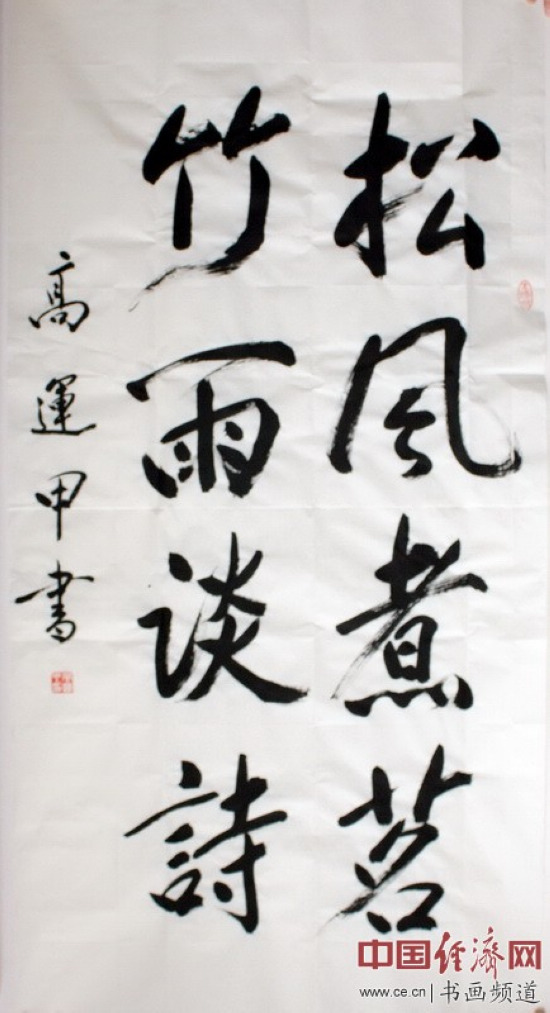 松风煮茗
竹雨谈詩
高運甲書
中国经濟网
www.ce.cn|书画频道